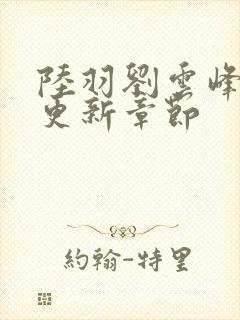 陸羽劉雲峰
更新章節
約翰-特里